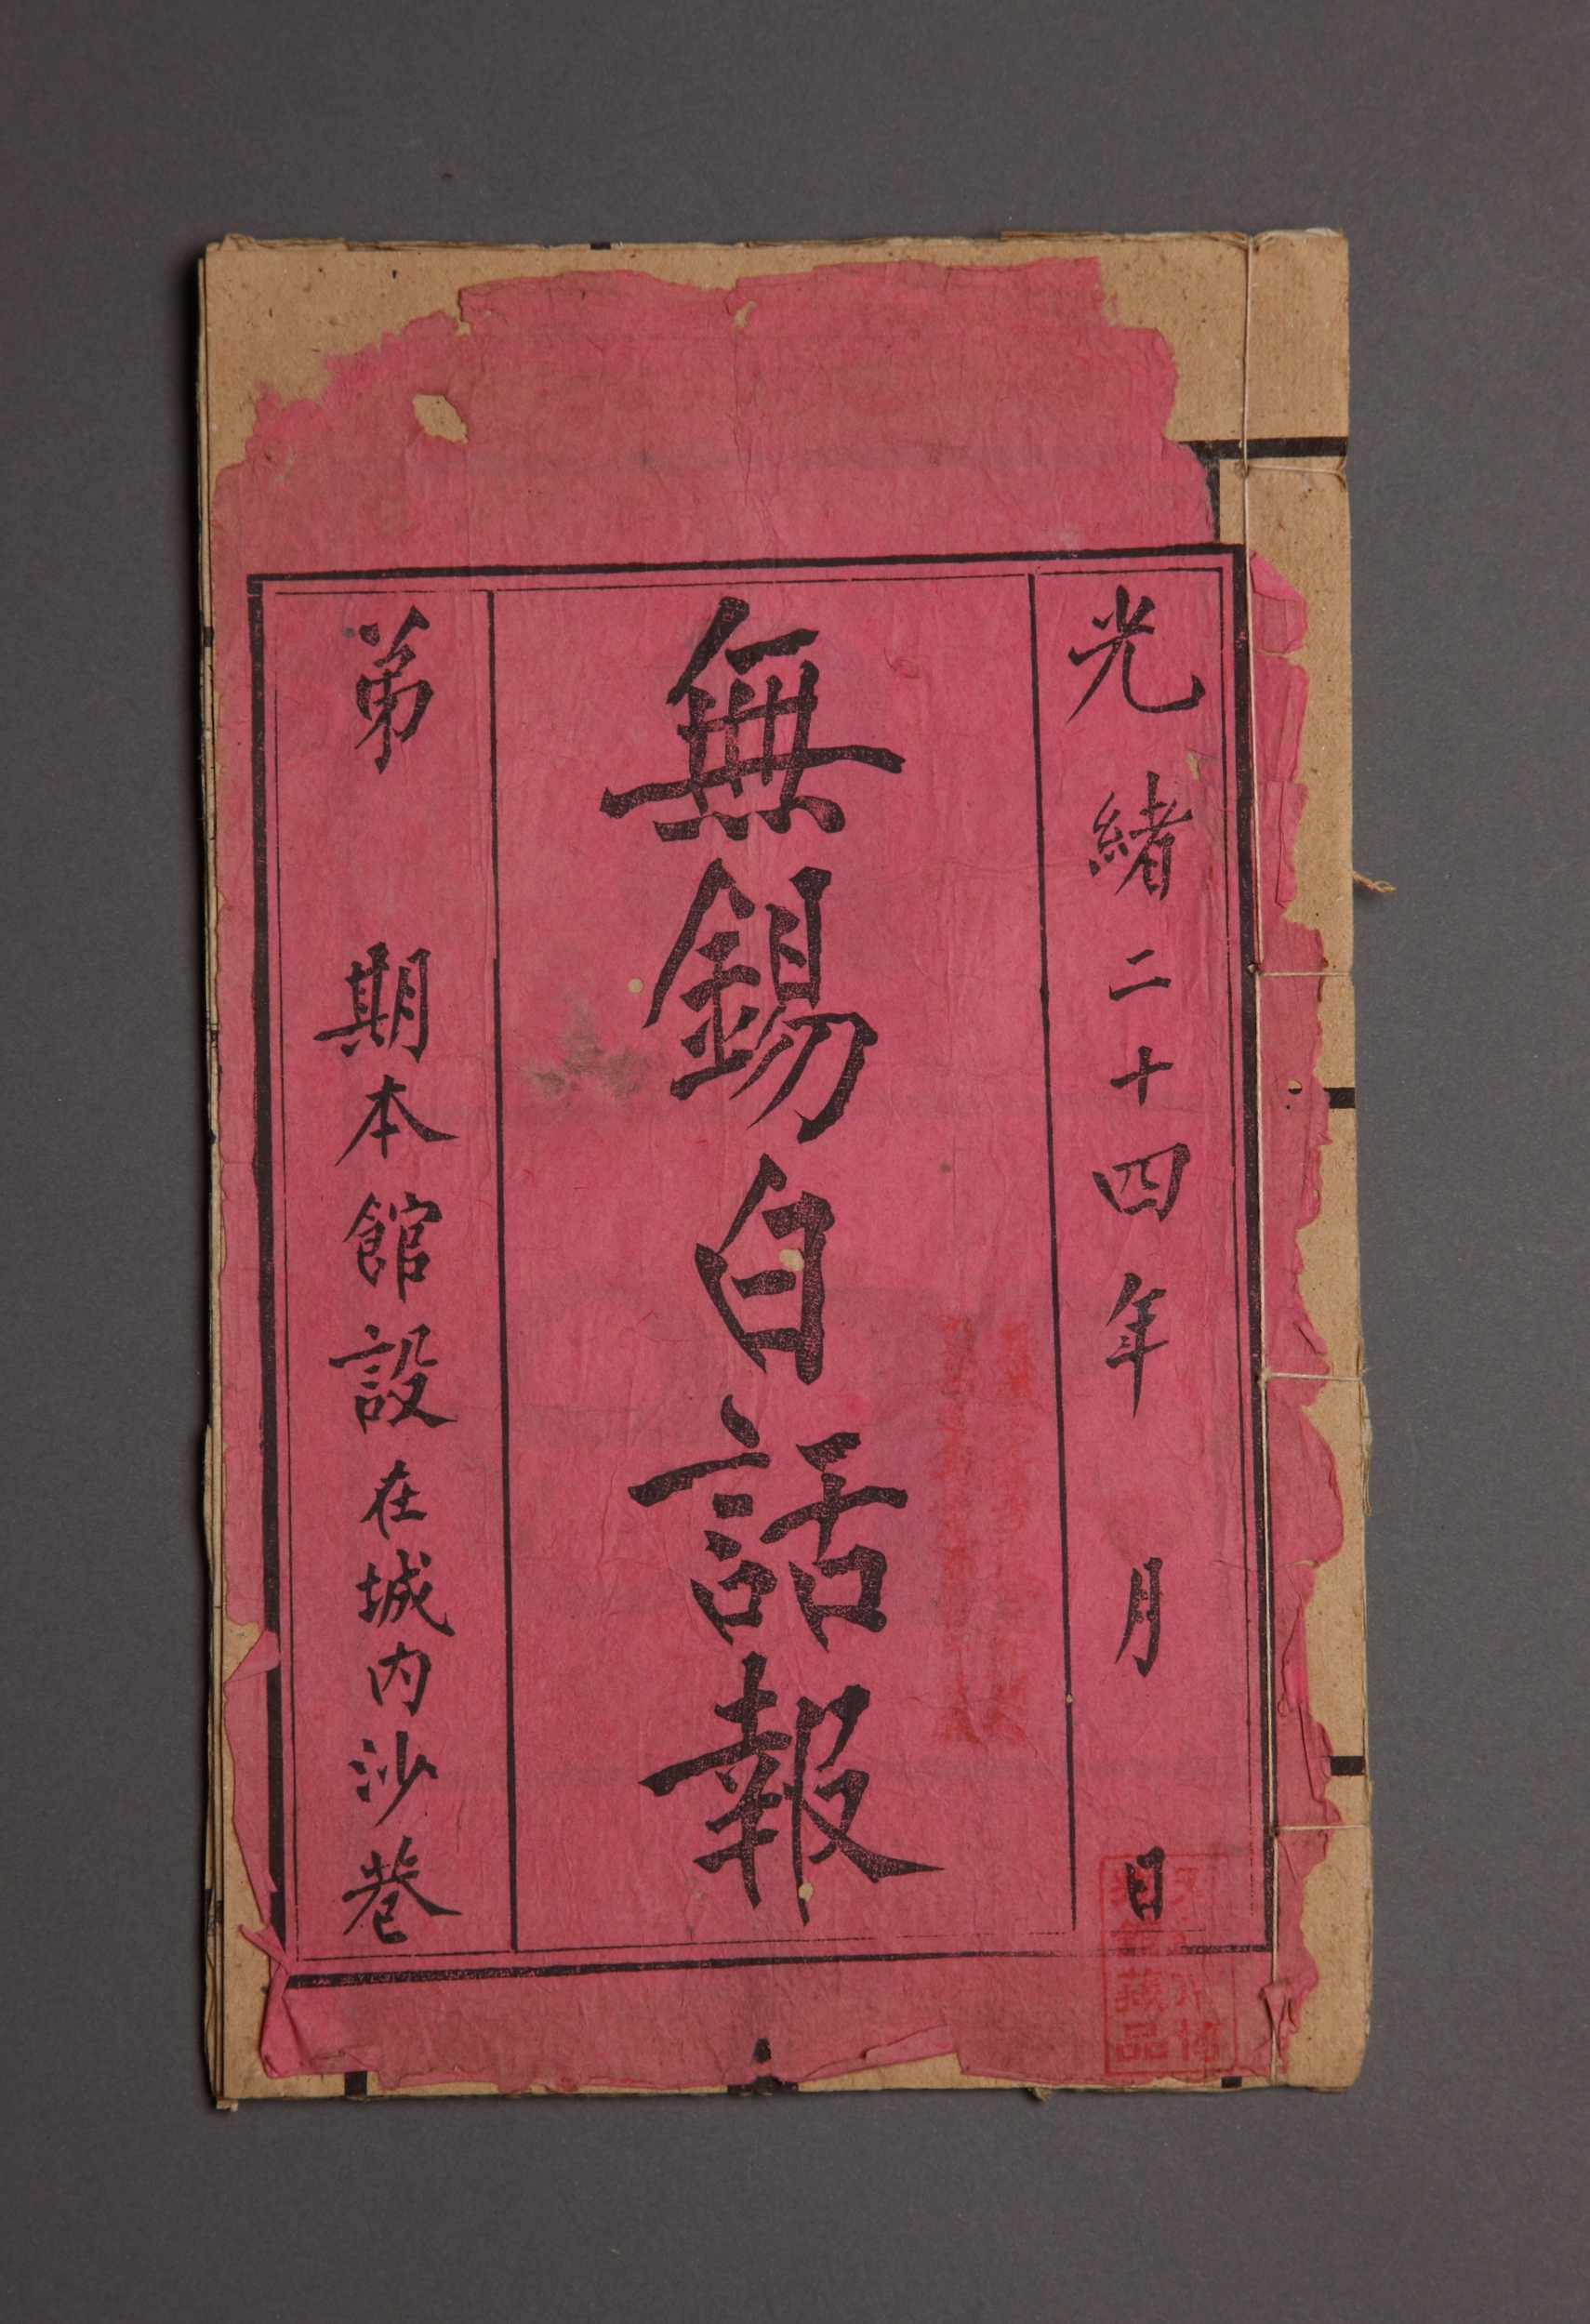 光緒二十四年 月 日
無錫白話報
弟 期本館設在城内沙巷
藏品